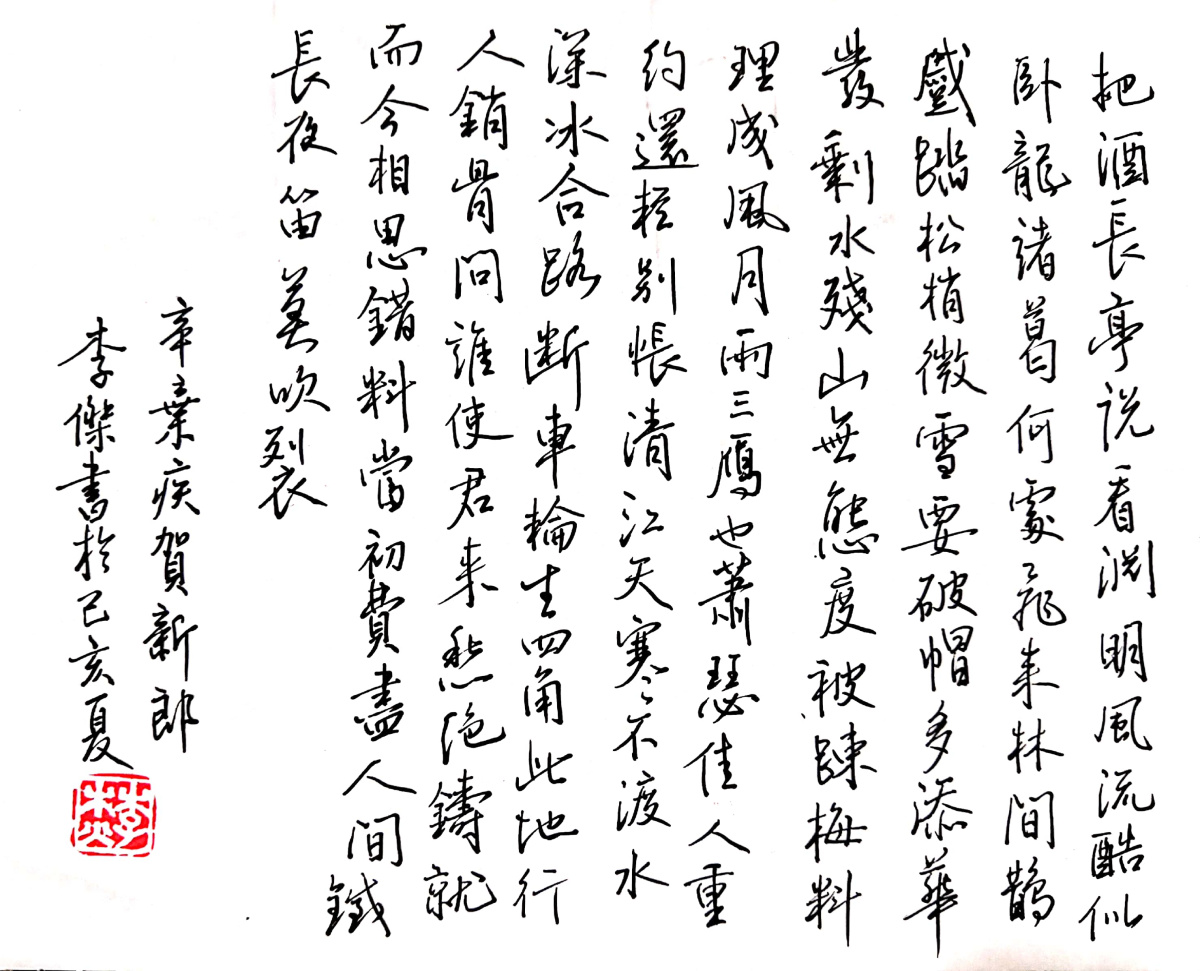 把酒長亭说看渊明風流酷似
卧龍諸葛何處飛来林間鵲
蹙踏松梢微雪要破帽多添華
髮剩水殘山無態度被疎梅料
理成風月兩三鴈也蕭瑟佳人重
约還輕别悵清江天寒不渡水
深冰合路断車輪生四角此地行
人銷骨問誰使君来愁绝鑄就
而今相思錯料當初費盡人間鐵
長夜笛莫吹裂
辛棄疾賀新郎
李傑書於己亥夏
李杰